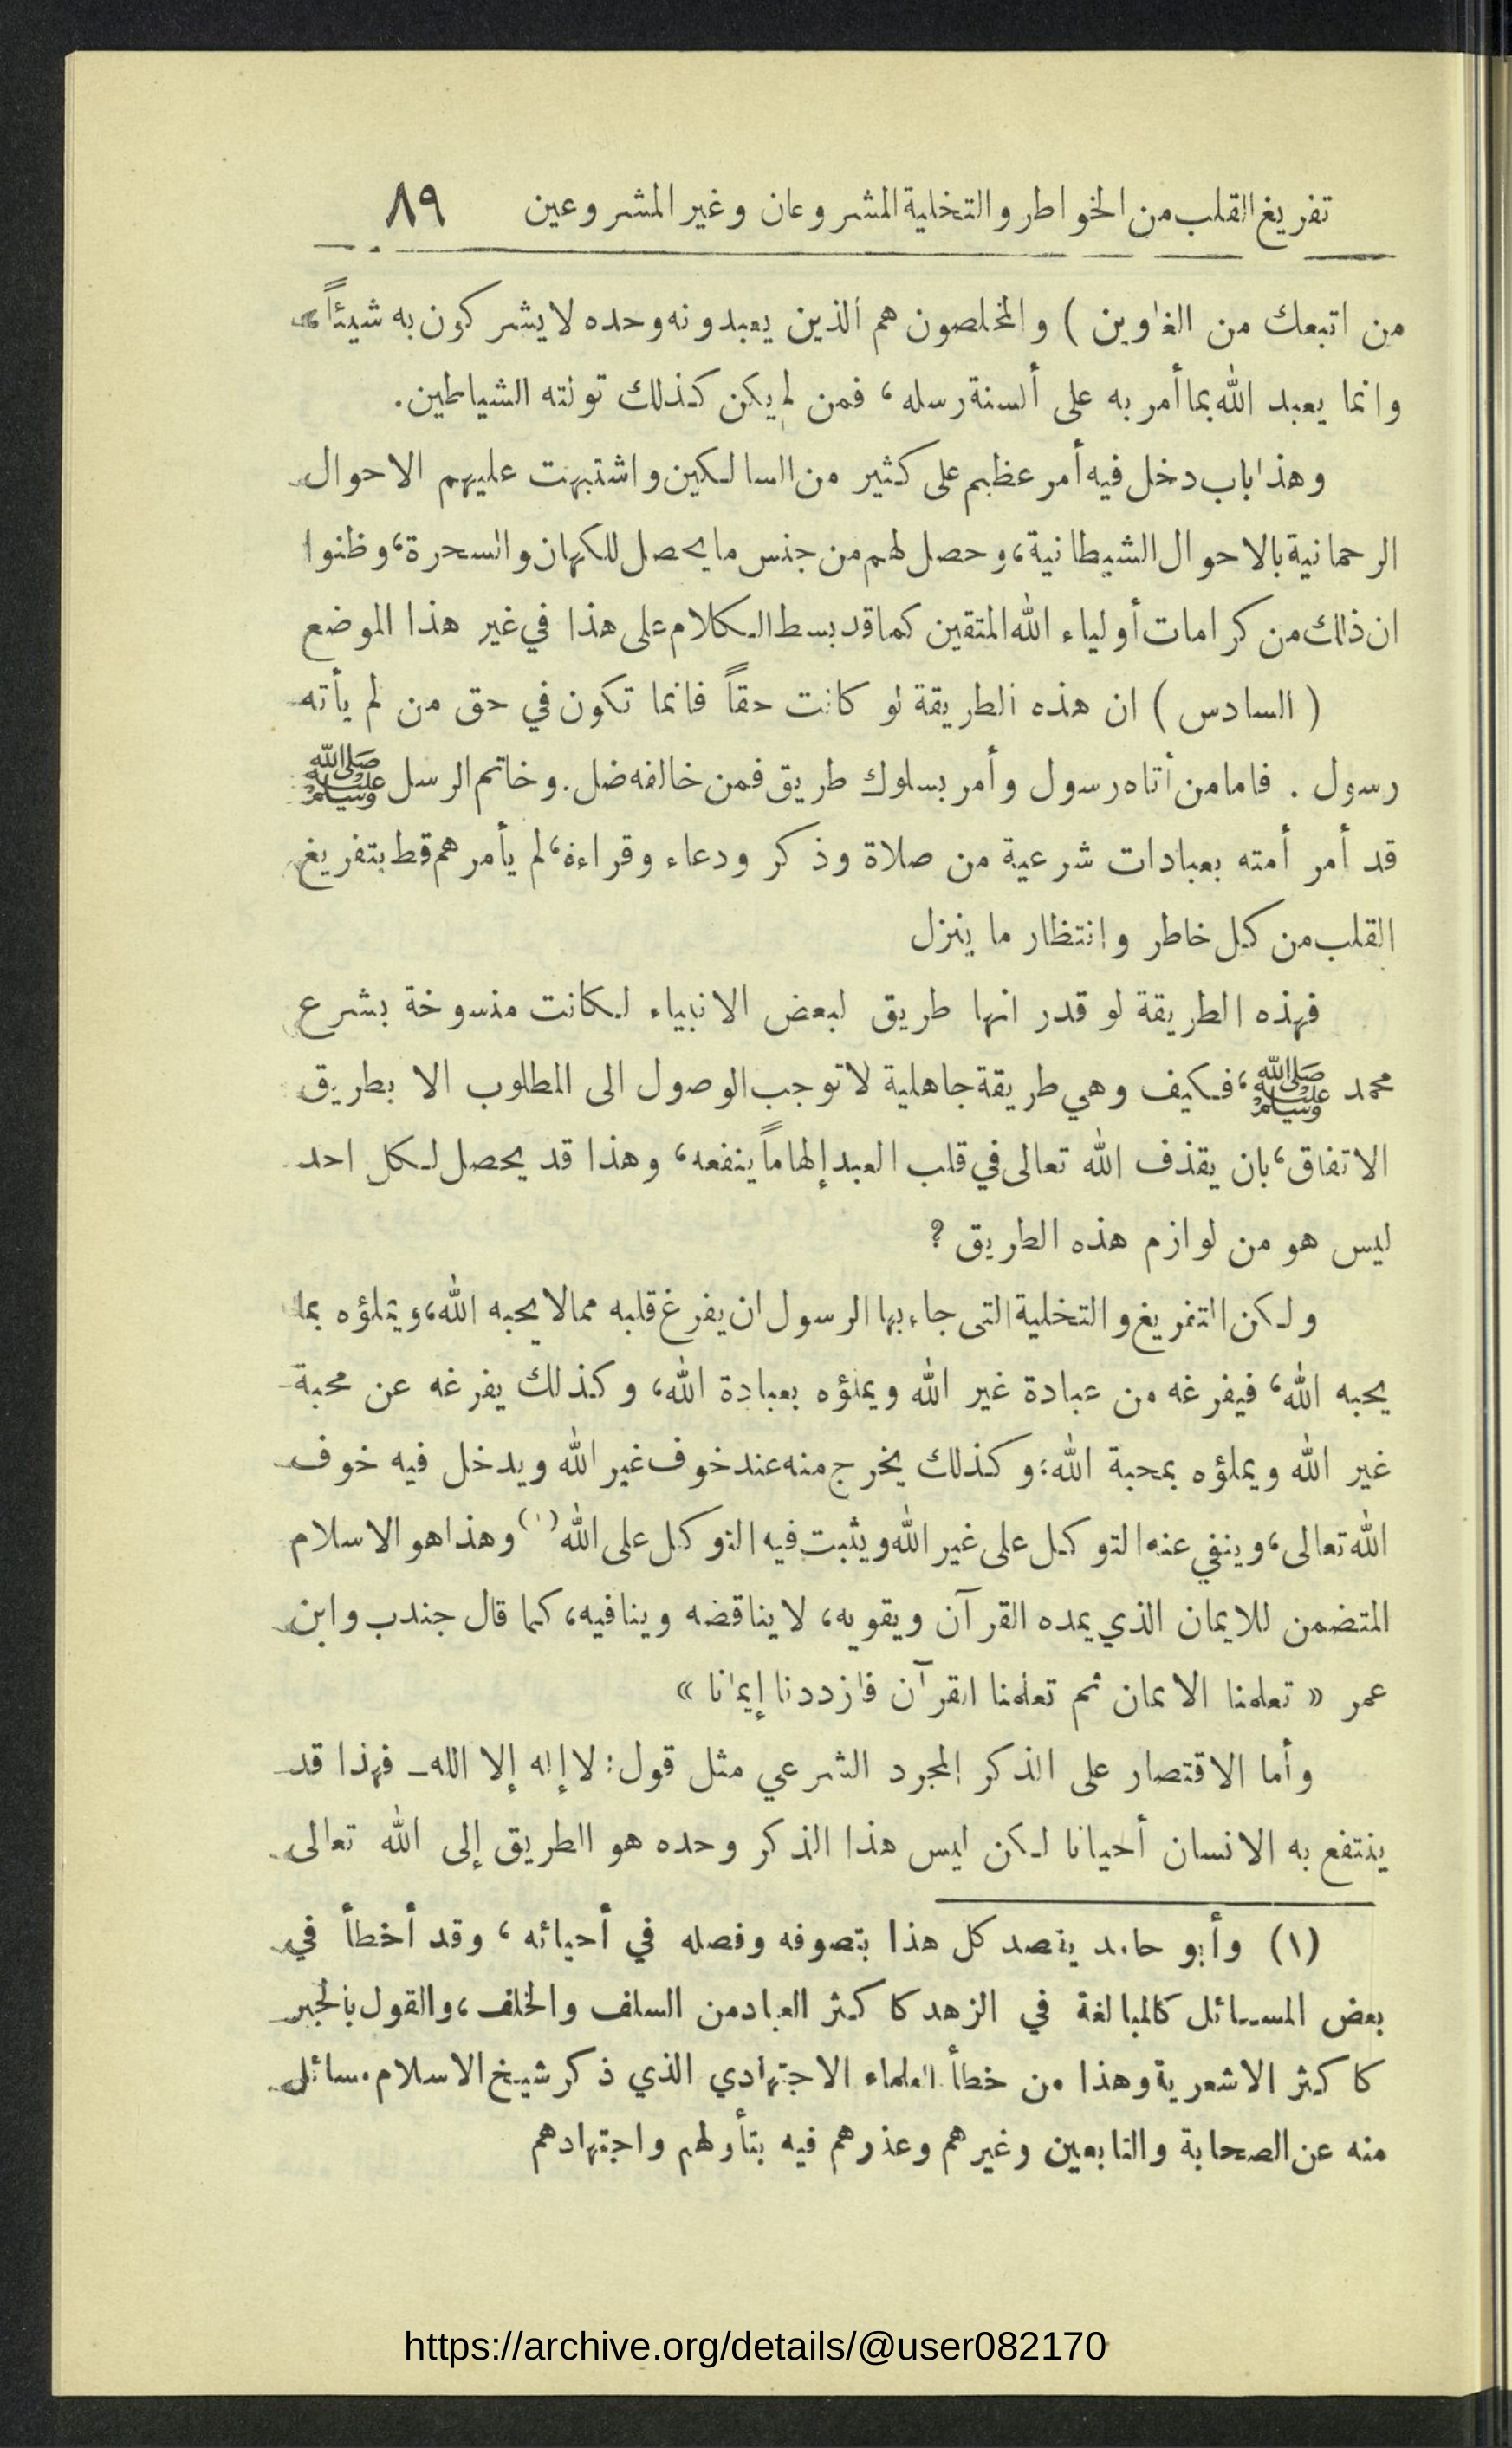 تفريغ القلب من الخواطر والتخلية المشروعان وغير المشروعين ٨٩
من اتبعك من الغاوين ) والمخلصون هم الذين يعبدونه وحده لا يشركون به شيئاً،
وانما يعبد الله بما أمر به على ألسنة رسله، فمن لم يكن كذلك تولته الشياطين.
وهذا باب دخل فيه أمر عظيم على كثير من السالكين واشتبهت عليهم الاحوال
الرحمانية بالاحوال الشيطانية، وحصل لهم من جنس ما يحصل للكهان والسحرة، وظنوا
ان ذلك من كرامات أولياء الله المتقين كما قد بسط الكلام على هذا في غير هذا الموضع
( السادس ) ان هذه الطريقة لو كانت حقاً فانما تكون في حق من لم يأته
رسول . فاما من أتاه رسول وأمر بسلوك طريق فمن خالفه ضل. وخاتم الرسل ﷺ
قد أمر أمته بعبادات شرعية من صلاة وذكر ودعاء وقراءة، لم يأمرهم قط بتفريغ
القلب من كل خاطر وانتظار ما ينزل
فهذه الطريقة لو قدر انها طريق لبعض الانبياء لكانت منسوخة بشرع
محمد ﷺ، فكيف وهي طريقة جاهلية لا توجب الوصول الى المطلوب الا بطريق
الاتفاق، بان يقذف الله تعالى في قلب العبد إلهاماً ينفعه، وهذا قد يحصل لكل احد
ليس هو من لوازم هذه الطريق ?
ولكن التفريغ والتخلية التي جاء بها الرسول ان يفرغ قلبه مما لا يحبه الله، ويملؤه بما
يحبه الله، فيفرغه من عبادة غير الله ويملؤه بعبادة الله، وكذلك يفرغه عن محبة
غير الله ويملؤه بمحبة الله؛ وكذلك يخرج منه عند خوف غير الله ويدخل فيه خوف
الله تعالى، وينفي عنه التوكل على غير الله ويثبت فيه التوكل على الله(١) وهذا هو الاسلام
المتضمن للايمان الذي يمده القرآن ويقويه، لا يناقضه وينافيه، كما قال جندب وابن
عمر « تعلمنا الايمان ثم تعلمنا القرآن فازددنا إيمانا »
وأما الاقتصار على الذكر المجرد الشرعي مثل قول: لا إله إلا الله ـ فهذا قد
ينتفع به الانسان أحيانا لكن ليس هذا الذكر وحده هو الطريق إلى الله تعالى
(١) وأبو حامد يقصد كل هذا بتصوفه وفصله في أحيائه، وقد أخطأ في
بعض المسائل كالمبالغة في الزهد كاكثر العباد من السلف والخلف، والقول بالجبر
كاكثر الاشعرية وهذا من خطأ العلماء الاجتهادي الذي ذكر شيخ الاسلام مسائل
منه عن الصحابة والتابعين وغيرهم وعذرهم فيه بتأولهم واجتهادهم
https://archive.org/details/@user082170